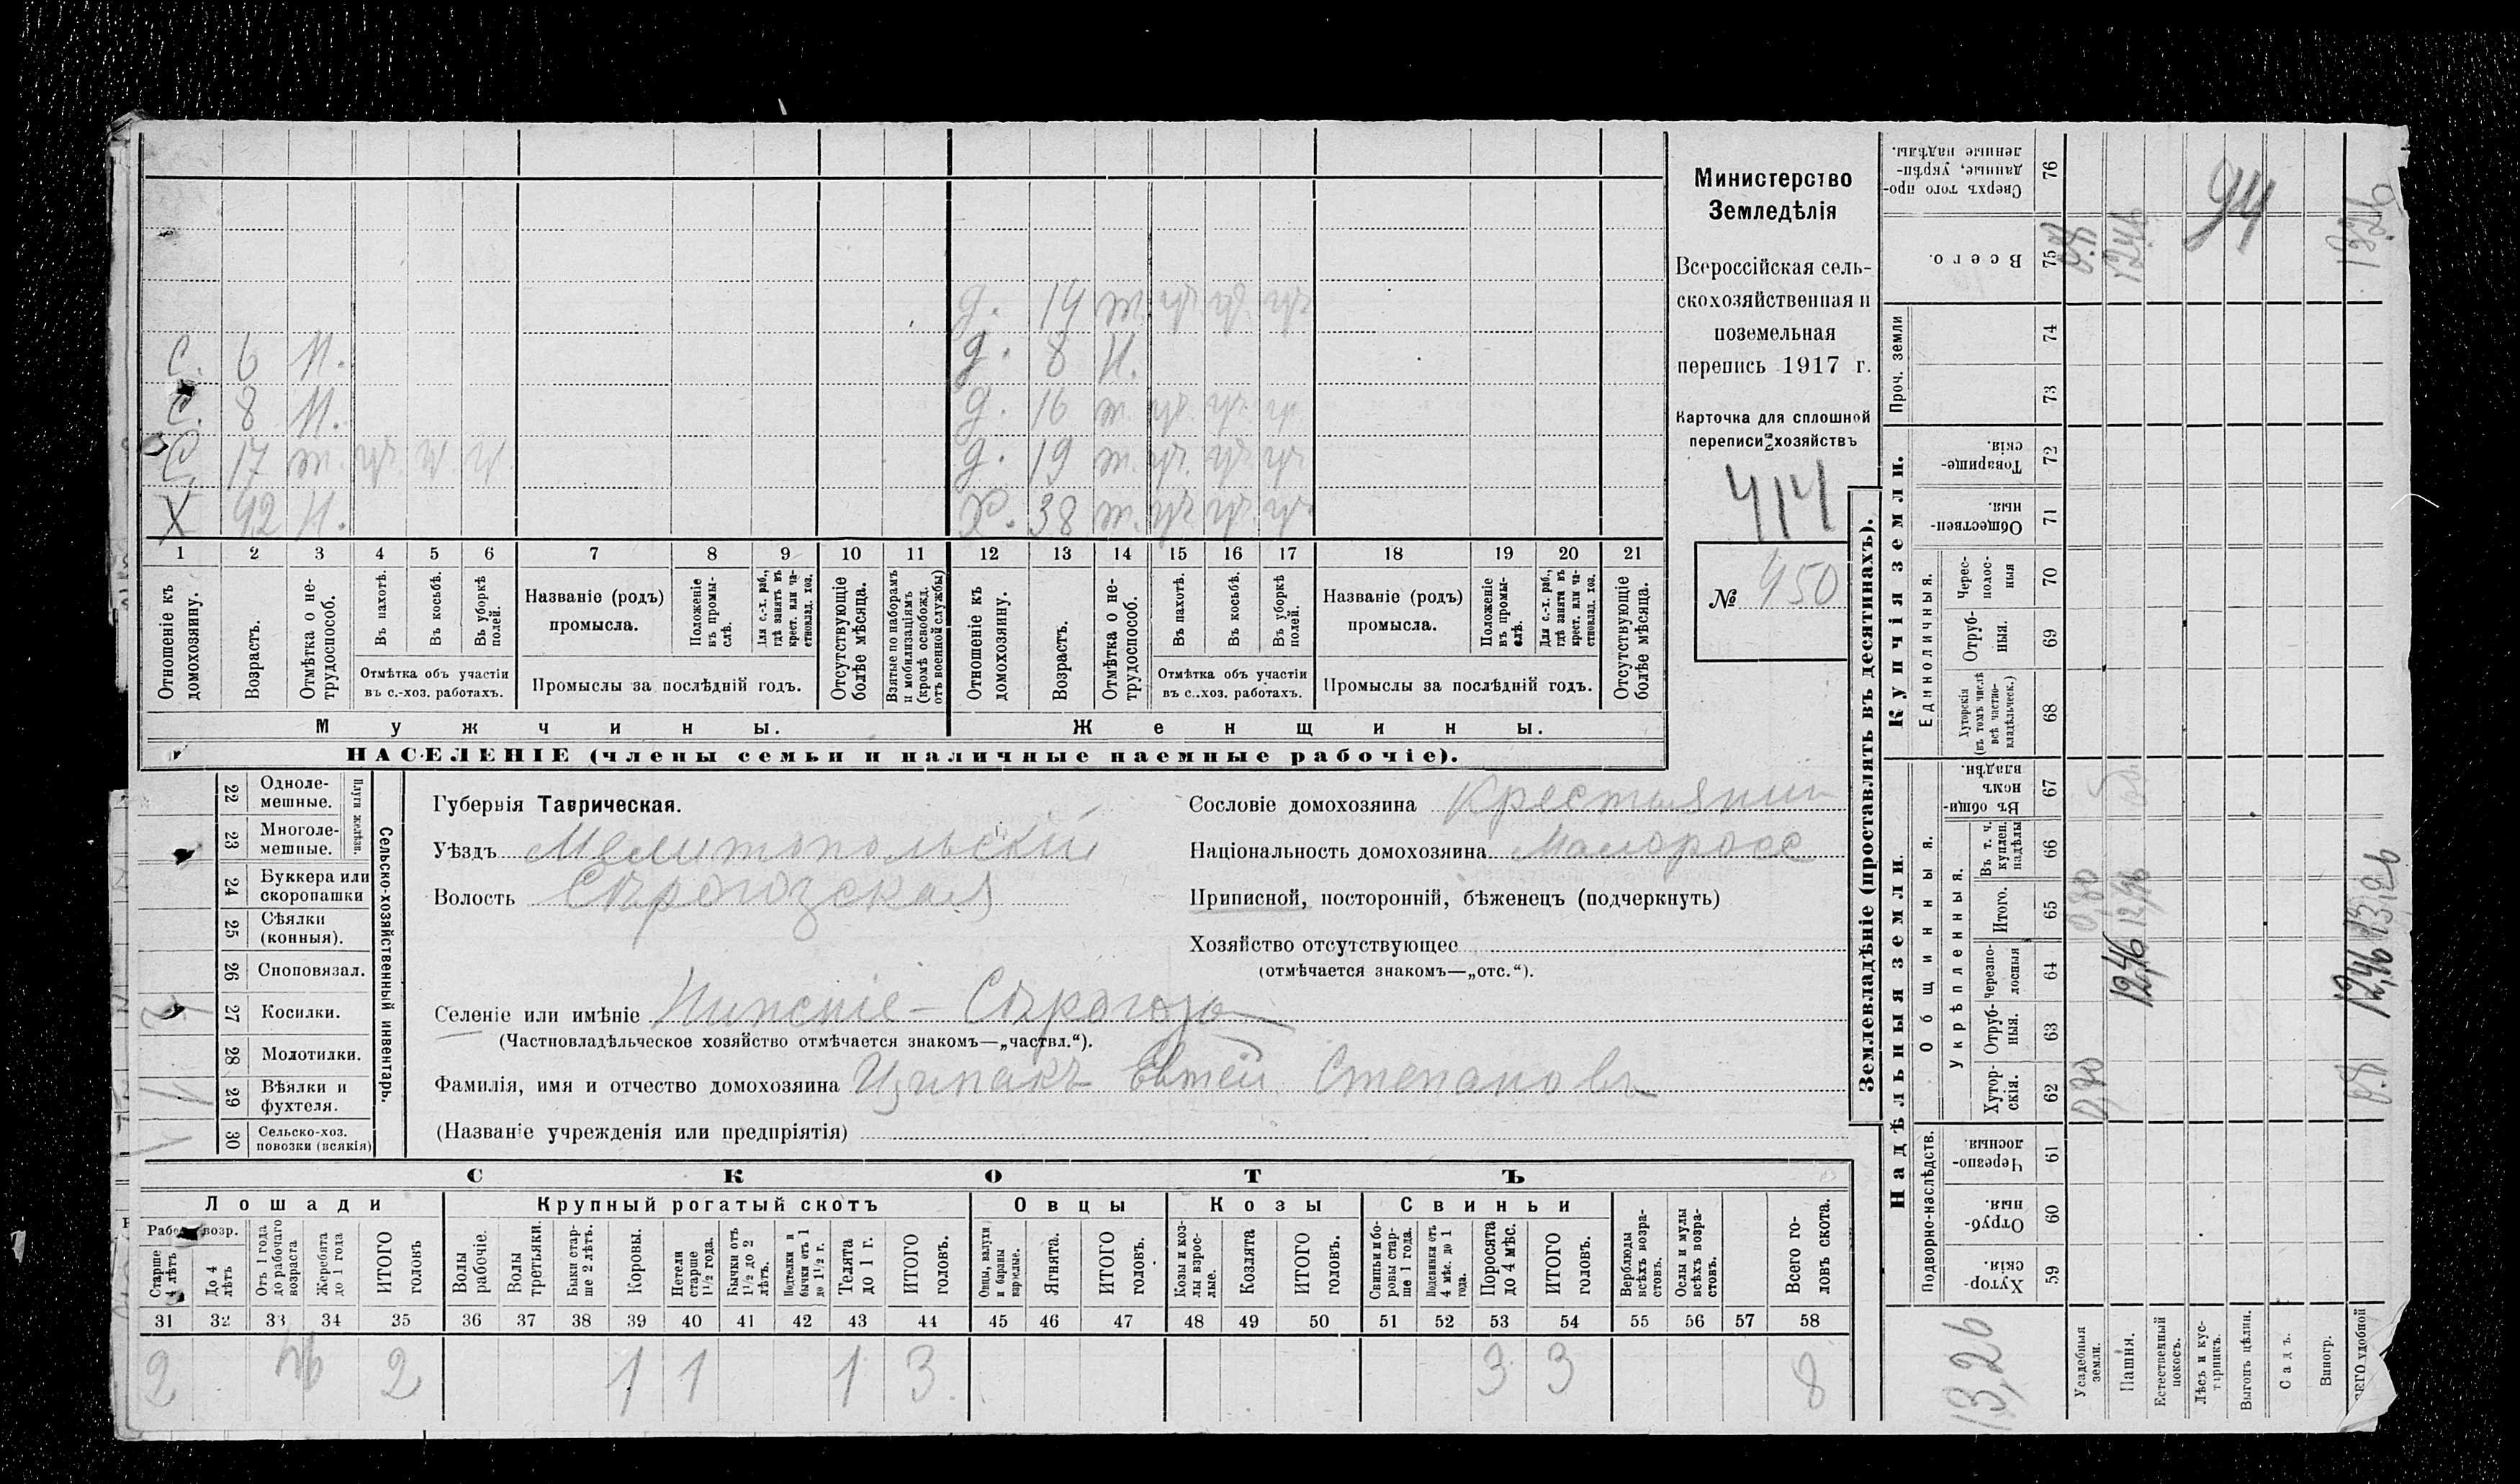 С. 6 Н.
С. 8 Н.
С. 17 т.
Х 42 Н.
д. 14 т.
д. 8 Н.
д. 16 т.
д. 19 т.
Х. 38 т.
1 2 3 4 5 6 7 8 9 10 11 12 13 14 15 16 17 18 19 20 21
Отношеніе къ домохозяину.
Возрастъ.
Отмѣтка о не-трудоспособ.
Въ пахотѣ.
Въ косьбѣ.
Въ уборкѣ полей.
Отмѣтка объ участіи
въ с.-хоз. работахъ.
Названіе (родъ)
промысла.
Положеніе въ промы-слѣ.
Для с.-х. раб., гдѣ занятъ въ крест. или ча-стновлад. хоз.
Промыслы за послѣдній годъ.
Отсутствующіе болѣе мѣсяца.
Взятые по наборамъ и мобилизаціямъ (кромѣ освобожд. отъ военной службы)
Отношеніе къ домохозяину.
Возрастъ.
Отмѣтка о не-трудоспособ.
Въ пахотѣ.
Въ косьбѣ.
Въ уборкѣ полей.
Отмѣтка объ участіи
въ с..хоз. работахъ.
Названіе (родъ)
промысла.
Положеніе въ промы-слѣ.
Для с.-х. раб., гдѣ занята въ крест. или ча-стновлад. хоз.
Промыслы за послѣдній годъ.
Отсутствующіе болѣе мѣсяца.
Мужчины.
Женщины.
НАСЕЛЕНІЕ (члены семьи и наличные наемные рабочіе).
Министерство
Земледѣлія
Всероссійская сель-
скохозяйственная и
поземельная
перепись 1917 г.
Карточка для сплошной
переписи хозяйствъ
414
№ 450
22 Одноле-мешные.
23 Многоле-мешные.
Плуги желѣзн.
24 Буккера или скоропашки
25 Сѣялки (конныя).
26 Сноповязал.
27 Косилки.
28 Молотилки.
29 Вѣялки и фухтеля.
30 Сельско-хоз. повозки (всякія)
Сельско-хозяйственный инвентарь.
Губернія Таврическая.
Уѣздъ Мелитопольскій
Волость Сѣрогозская
Селеніе или имѣніе Нижніе-Сѣрогозы
(Частновладѣльческое хозяйство отмѣчается знакомъ—„частвл.“).
Фамилія, имя и отчество домохозяина Евтей Степановъ
(Названіе учрежденія или предпріятія)
Сословіе домохозяина Крестьянин
Національность домохозяина Малоросс
Приписной, посторонній, бѣженецъ (подчеркнуть)
Хозяйство отсутствующее
(отмѣчается знакомъ—„отс.“).
СКОТЪ
Лошади
Крупный рогатый скотъ
Овцы
Козы
Свиньи
Рабоч. возр.
Старше 4 лѣтъ
До 4 лѣтъ
Отъ 1 года до рабочаго возраста
Жеребята до 1 года
ИТОГО головъ
Волы рабочіе.
Волы третьяки.
Быки стар-ше 2 лѣтъ.
Коровы.
Нетели старше 1½ года.
Бычки отъ 1½ до 2 лѣтъ.
Подтелки и бычки отъ 1 до 1½ г.
Телята до 1 г.
ИТОГО головъ.
Овцы, валухи и бараны взрослые.
Ягнята.
ИТОГО головъ.
Козы и коз-лы взрос-лые.
Козлята
ИТОГО головъ.
Свиньи и бо-ровы стар-ше 1 года.
Подсвинки отъ 4 мѣс. до 1 года.
Поросята до 4 мѣс.
ИТОГО головъ.
Верблюды всѣхъ возра-стовъ.
Ослы и мулы всѣхъ возра-стовъ.
Всего го-ловъ скота.
31 32 33 34 35 36 37 38 39 40 41 42 43 44 45 46 47 48 49 50 51 52 53 54 55 56 57 58
2 2 1 1 1 3 3 3 8
Землевладѣніе (проставлять въ десятинахъ).
Надѣльныя земли.
Купчія земли.
Проч. земли
Подворно-наслѣдств.
Общинныя.
Укрѣпленныя.
Единоличныя.
Хутор-скія. 59
Отруб-ныя. 60
Черезпо-лосныя 61
Хутор-скія. 62
Отруб-ныя. 63
Черезпо-лосныя 64
Итого. 65
Въ т. ч. куплен. надѣлы 66
Въ общи-номъ владѣн. 67
Хуторскія (въ томъ числѣ всѣ частно-владѣльческ.) 68
Отруб-ныя. 69
Черес-полос-ныя 70
Обществен-ныя 71
Товарище-скія. 72
73
74
Всего. 75
Сверхъ того про-данные, укрѣп-ленные надѣлы. 76
Усадебныя земли.
Пашня.
12,46 12,46
Естественный покосъ.
Лѣсъ и кус-тарникъ.
Выгонъ цѣлин.
Садъ.
Виногр.
12,46 13,26
13,26
94